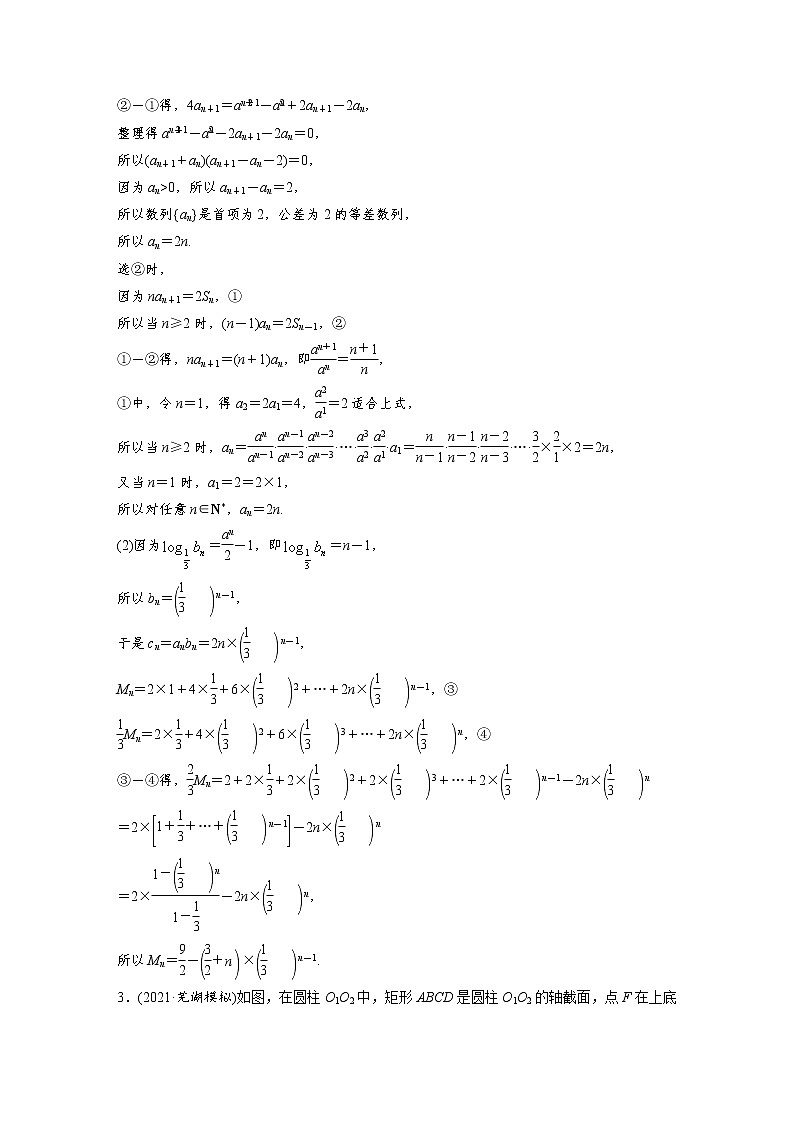 ②-①得，4aₙ₊₁=a²ₙ₊₁-a²ₙ+2aₙ₊₁-2aₙ,
整理得a²ₙ₊₁-a²ₙ-2aₙ₊₁-2aₙ=0,
所以(aₙ₊₁+aₙ)(aₙ₊₁-aₙ-2)=0,
因为aₙ>0，所以aₙ₊₁-aₙ=2,
所以数列{aₙ}是首项为2，公差为2的等差数列,
所以aₙ=2n.
选②时,
因为naₙ₊₁=2Sₙ，①
所以当n≥2时，(n-1)aₙ=2Sₙ₋₁，②
①-②得，naₙ₊₁=(n+1)aₙ，即\frac{an+1}{an}=\frac{n+1}{n},
①中，令n=1，得a₂=2a₁=4，\frac{a2}{a1}=2适合上式,
所以当n≥2时，aₙ=\frac{an}{an-1}·\frac{an-1}{an-2}·\frac{an-2}{an-3}·…·\frac{a3}{a2}·\frac{a2}{a1}·a₁=\frac{n}{n-1}·\frac{n-1}{n-2}·\frac{n-2}{n-3}·…·\frac{3}{2}×\frac{2}{1}×2=2n,
又当n=1时，a₁=2=2×1,
所以对任意n∈N*，aₙ=2n.
(2)因为log_{\frac{1}{3}}bₙ=\frac{an}{2}-1，即log_{\frac{1}{3}}bₙ=n-1,
所以bₙ=(\frac{1}{3})n-1,
于是cₙ=aₙbₙ=2n×(\frac{1}{3})n-1,
Mₙ=2×1+4×\frac{1}{3}+6×(\frac{1}{3})2+…+2n×(\frac{1}{3})n-1，③
\frac{1}{3}Mₙ=2×\frac{1}{3}+4×(\frac{1}{3})2+6×(\frac{1}{3})3+…+2n×(\frac{1}{3})n，④
③-④得，\frac{2}{3}Mₙ=2+2×\frac{1}{3}+2×(\frac{1}{3})2+2×(\frac{1}{3})3+…+2×(\frac{1}{3})n-1-2n×(\frac{1}{3})n
=2×[1+\frac{1}{3}+…+(\frac{1}{3})n-1]-2n×(\frac{1}{3})n
=2×\frac{1-(\frac{1}{3})n}{1-\frac{1}{3}}-2n×(\frac{1}{3})n,
所以Mₙ=\frac{9}{2}-(\frac{3}{2}+n)×(\frac{1}{3})n-1.
3．(2021·芜湖模拟)如图，在圆柱O₁O₂中，矩形ABCD是圆柱O₁O₂的轴截面，点F在上底